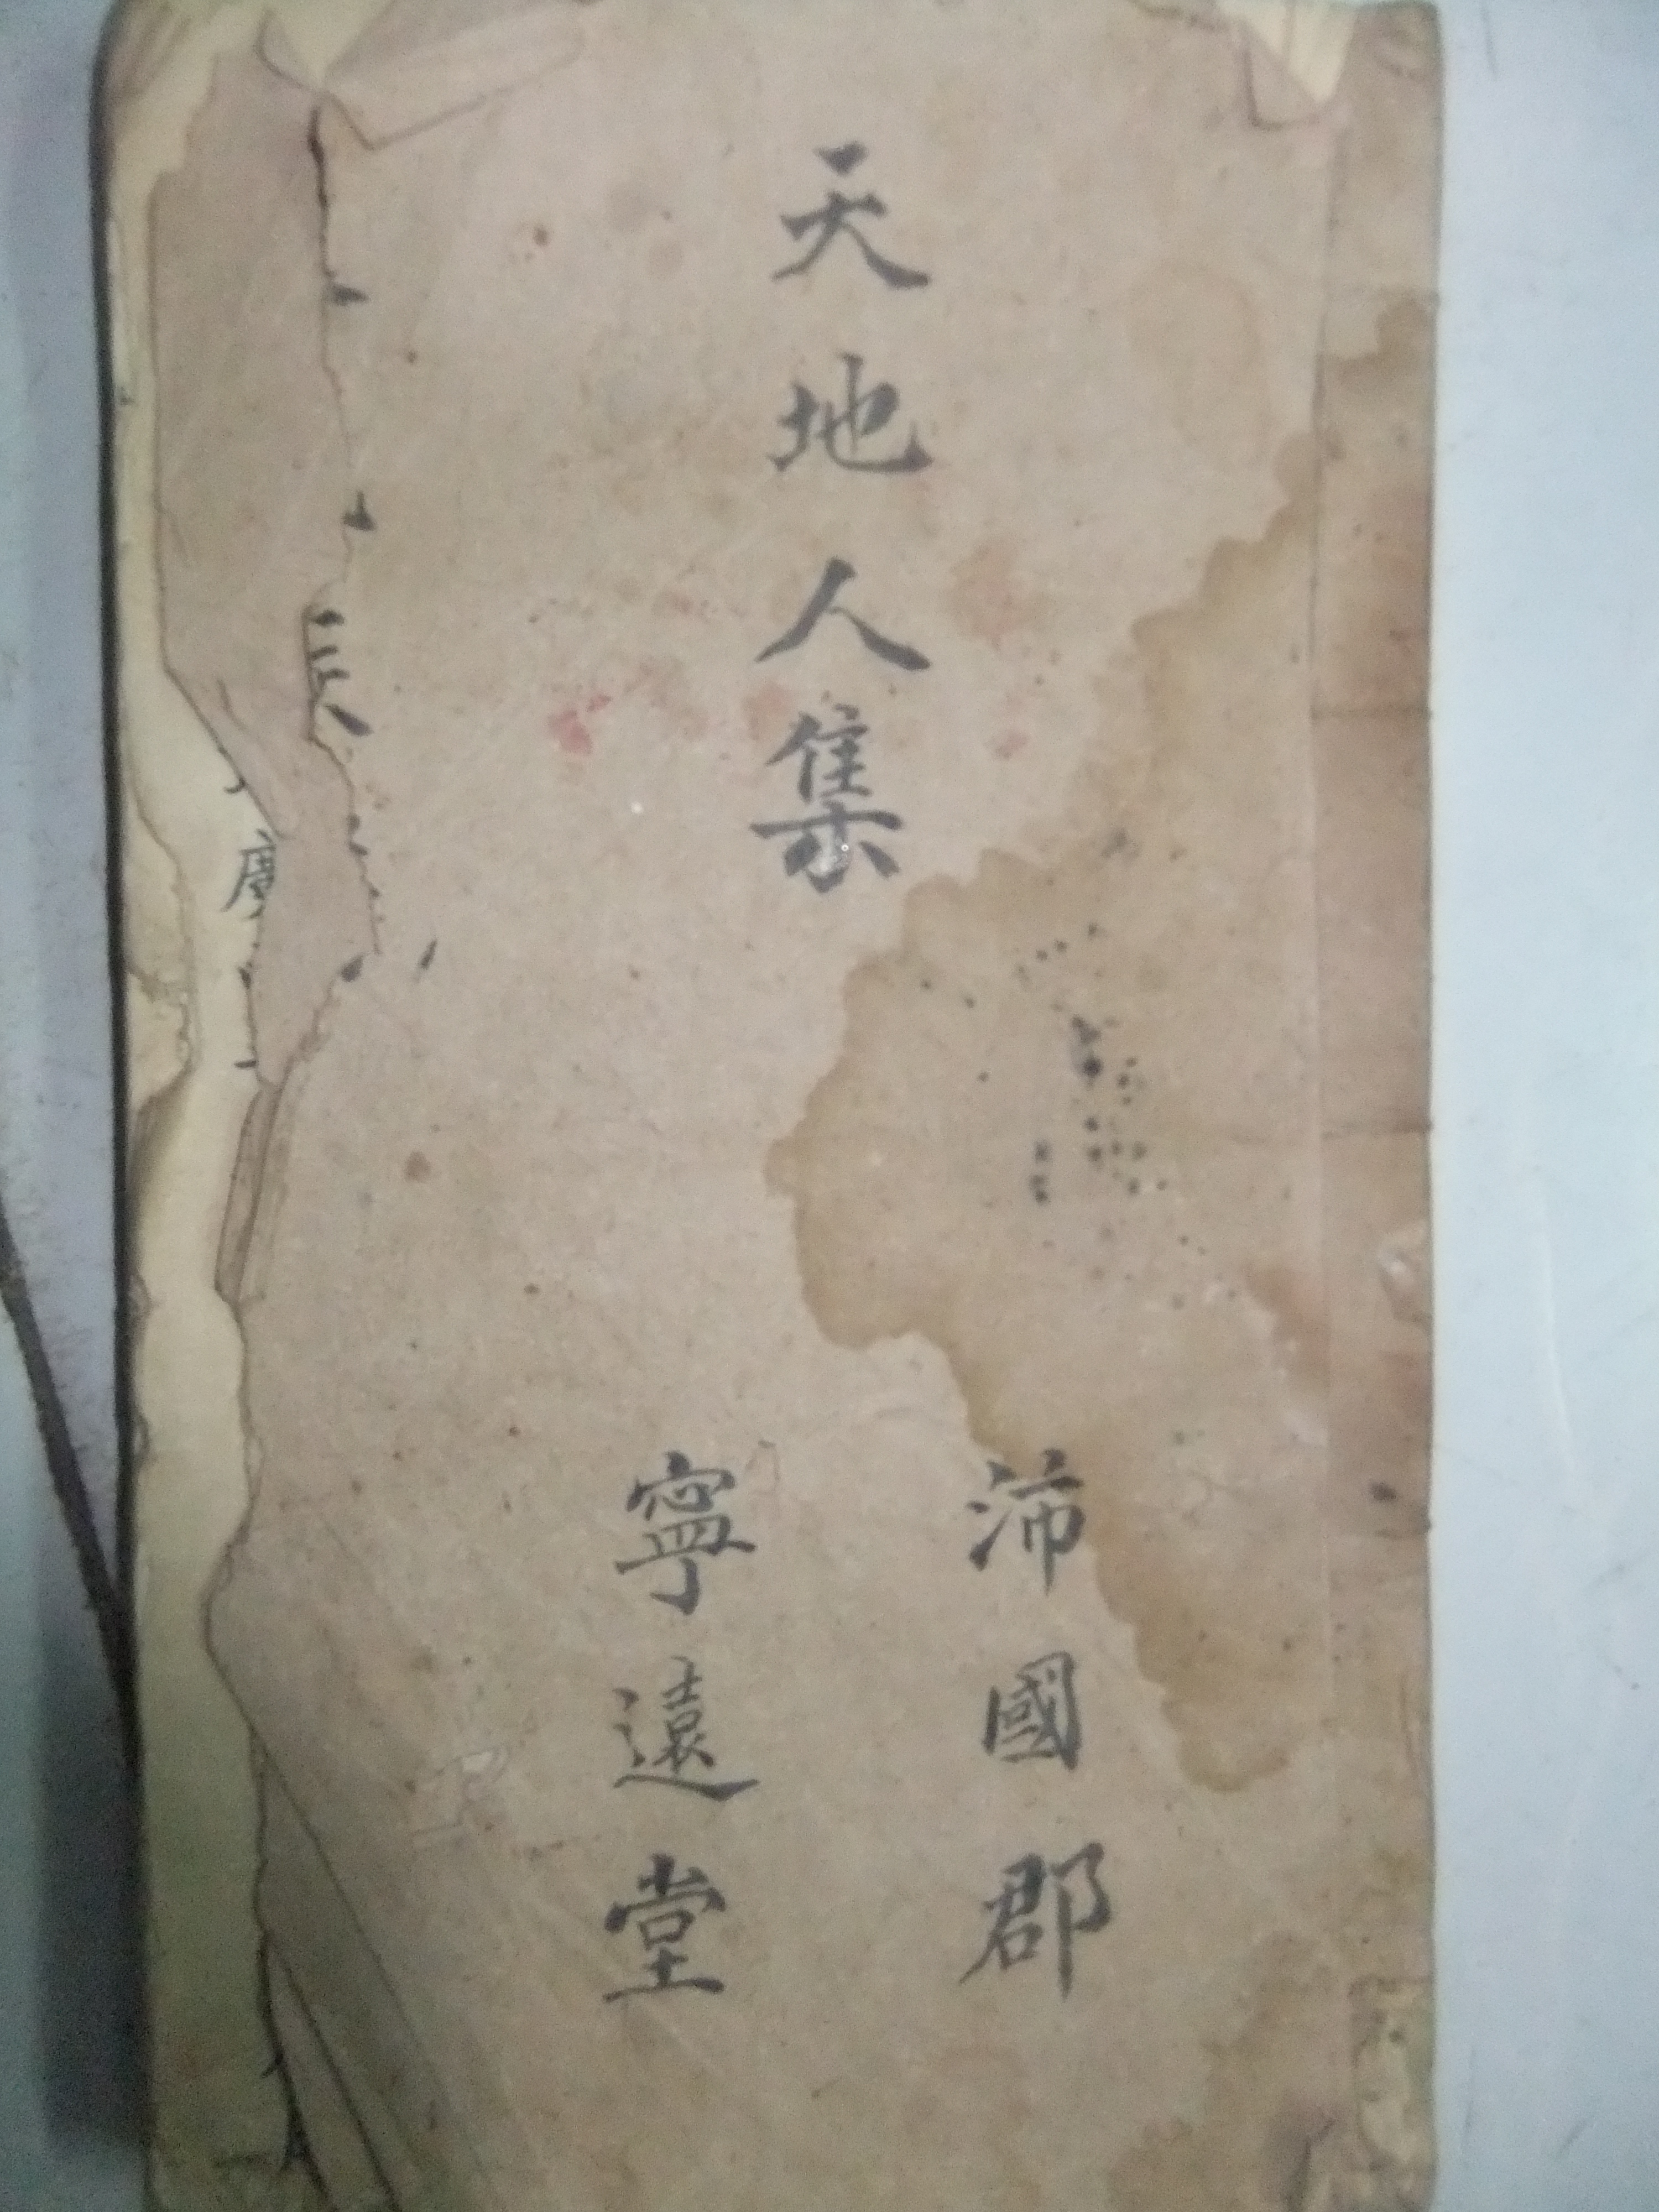 天地人集
沛國郡
寧遠堂
廣